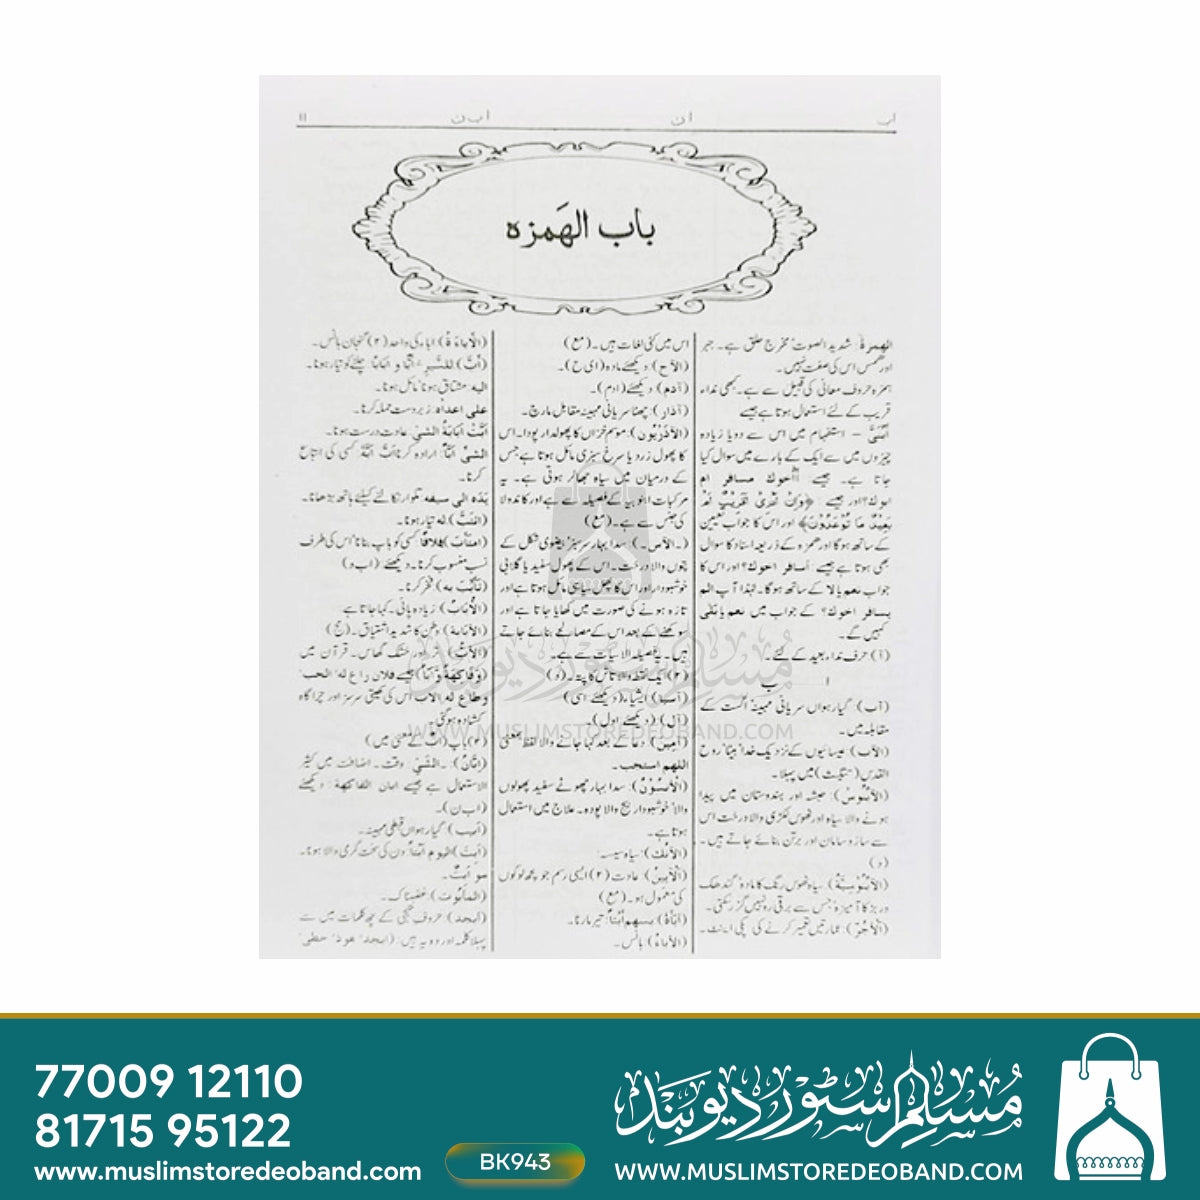 اب
ا ن
اب ن
۱۱
باب الهَمزه
الهمزة: شدید الصوت مخرج حلق ہے۔ جہر
اور ہمس اس کی صفت نہیں۔
ہمزہ حروف معانی کی قبیل سے ہے۔ کبھی نداء
قریب کے لئے استعمال ہوتا ہے جیسے
أبُنَیَّ – استفہام میں اس سے دو یا زیادہ
چیزوں میں سے ایک کے بارے میں سوال کیا
جاتا ہے۔ جیسے أاخوك مسافر ام
ابوك؟ اور جیسے ﴿وَإنْ أدْرِیْ أقَرِیْبٌ أمْ
بَعِیْدٌ مَا تُوْعَدُوْنَ﴾ اور اس کا جواب تعیین
کے ساتھ ہوگا اور ہمزہ کے ذریعہ اسناد کا سوال
بھی ہوتا ہے جیسے أسافر اخوك؟ اور اس کا
جواب نعم یا لا کے ساتھ ہوگا۔ لہٰذا آپ الم
یسافر اخوك؟ کے جواب میں نعم یا بلٰی
کہیں گے۔
(آ) حرف نداء بعید کے لئے۔
ا ب
(آب): گیارہواں سریانی مہینہ اگست کے
مقابلہ میں۔
(الآب) عیسائیوں کے نزدیک خدا بیٹا روح
القدس (تثلیث) میں پہلا۔
(الآبنُوْسُ): حبشہ اور ہندوستان میں پیدا
ہونے والا سیاہ اور ٹھوس لکڑی والا درخت اس
سے ساز و سامان اور برتن بنائے جاتے ہیں۔
(د)
سیاہ ٹھوس رنگ کا مادہ گندھک
و ربڑ کا آمیزہ جس سے برقی رو نہیں گزر سکتی۔
(الآجُرّ): عمارتیں تعمیر کرنے کی پکی اینٹ۔
اس میں کئی لغات ہیں۔ (مع)
(الآح) دیکھئے مادہ (ای ح)۔
(آدم) دیکھئے (ادم)۔
(آذار): چھٹا سریانی مہینہ مقابل مارچ۔
(الآذَرْیُون): موسم خزاں کا پھولدار پودا۔ اس
کا پھول زرد یا سرخ سبزی مائل ہوتا ہے جس
کے درمیان میں سیاہ جھالر ہوتی ہے۔ یہ
مرکبات انوبیا کے فصیلہ سے ہے اور کاندولا
کی جنس سے ہے۔ (مع)
(۔الآس۔): سدا بہار سرسبز بیضوی شکل کے
پتوں والا درخت۔ اس کے پھول سفید یا گلابی
خوشبودار اور اس کا پھل سیاہی مائل ہوتا ہے اور
تازہ ہونے کی صورت میں کھایا جاتا ہے اور
سوکھنے کے بعد اس کے مصالحے بنائے جاتے
ہیں۔ یہ فصیلہ الآسیات سے ہے۔
(۲) ایک نقطہ والا تاش کا پتہ۔ (د)
(آسیا) ایشیاء (دیکھئے اسی)
(آل) (دیکھئے اول)۔
(آمِیْن) دعا کے بعد کہا جانے والا لفظ بمعنی
اللهم استجب۔
سدا بہار چھوٹے سفید پھولوں
والا خوشبودار بیج والا پودہ۔ علاج میں استعمال
ہوتا ہے۔
(الآنُكُ): سیاہ سیسہ۔
(الآیِیْنُ) عادت (۲) ایسی رسم جو کچھ لوگوں
کی معمول ہو۔ (مع)
(أبَأهُ) بسهمٍ أبْئاً: تیر مارنا۔
(الأباءُ) بانس۔
(الأباءَةُ): اباء کی واحد (۲) گنجان بانس۔
(أبَّ) للسَّیرِ أبًّا و اَبَاباً: چلنے کو تیار ہونا۔
الیه مشتاق ہونا مائل ہونا۔
علی اعدائه: زبردست حملہ کرنا۔
أبَّتْ أبَابَةُ الشئِ عادت درست ہونا۔
الشئَ أبًّا ارادہ کرنا أبَّ أبَّهُ کسی کی اتباع
کرنا۔
یَدَهُ الی سیفه تلوار نکالنے کیلئے ہاتھ بڑھانا۔
(ائتَبَّ) له تیار ہونا۔
فُلاناً کسی کو باپ بنانا اس کی طرف
نسب منسوب کرنا۔ دیکھئے (اب و)
(تَأبَّبَ به) فخر کرنا۔
(الأُبَابُ) زیادہ پانی۔ کہا جاتا ہے
(الأبَابَة) وطن کا شدید اشتیاق۔ (مج)
(الأَبُّ) تر اور خشک گھاس۔ قرآن میں
(وَفَاكِهَةً وَّأَبًّا) جیسے فلان راع له الحب
وطاع له الأب اس کی کھیتی سرسبز اور چراگاہ
کشادہ ہوگئی۔
(۲) باپ (اب کے معنی میں)
(إبَّانُ): ۔الشئ وقت۔ اضافت میں کثیر
الاستعمال ہے جیسے ابان الفاکهة: دیکھئے
(اب ن)۔
(ابیب) گیارہواں قبطی مہینہ۔
(أبِتَ) الیوم أبْتاً دن کی سخت گرمی والا ہونا۔
هو أبِتٌ۔
(المأبُوت): غضبناک۔
(أبجد): حروف تہجی کے چھ کلمات میں سے
پہلا کلمہ اور وہ یہ ہیں: (ابجد' هوذ' حطی'
مسلم سٹور دیوبند
WWW.MUSLIMSTOREDEOBAND.COM
77009 12110
81715 95122
www.muslimstoredeoband.com
BK943
مُسلم سٹور دیوبَند
WWW.MUSLIMSTOREDEOBAND.COM